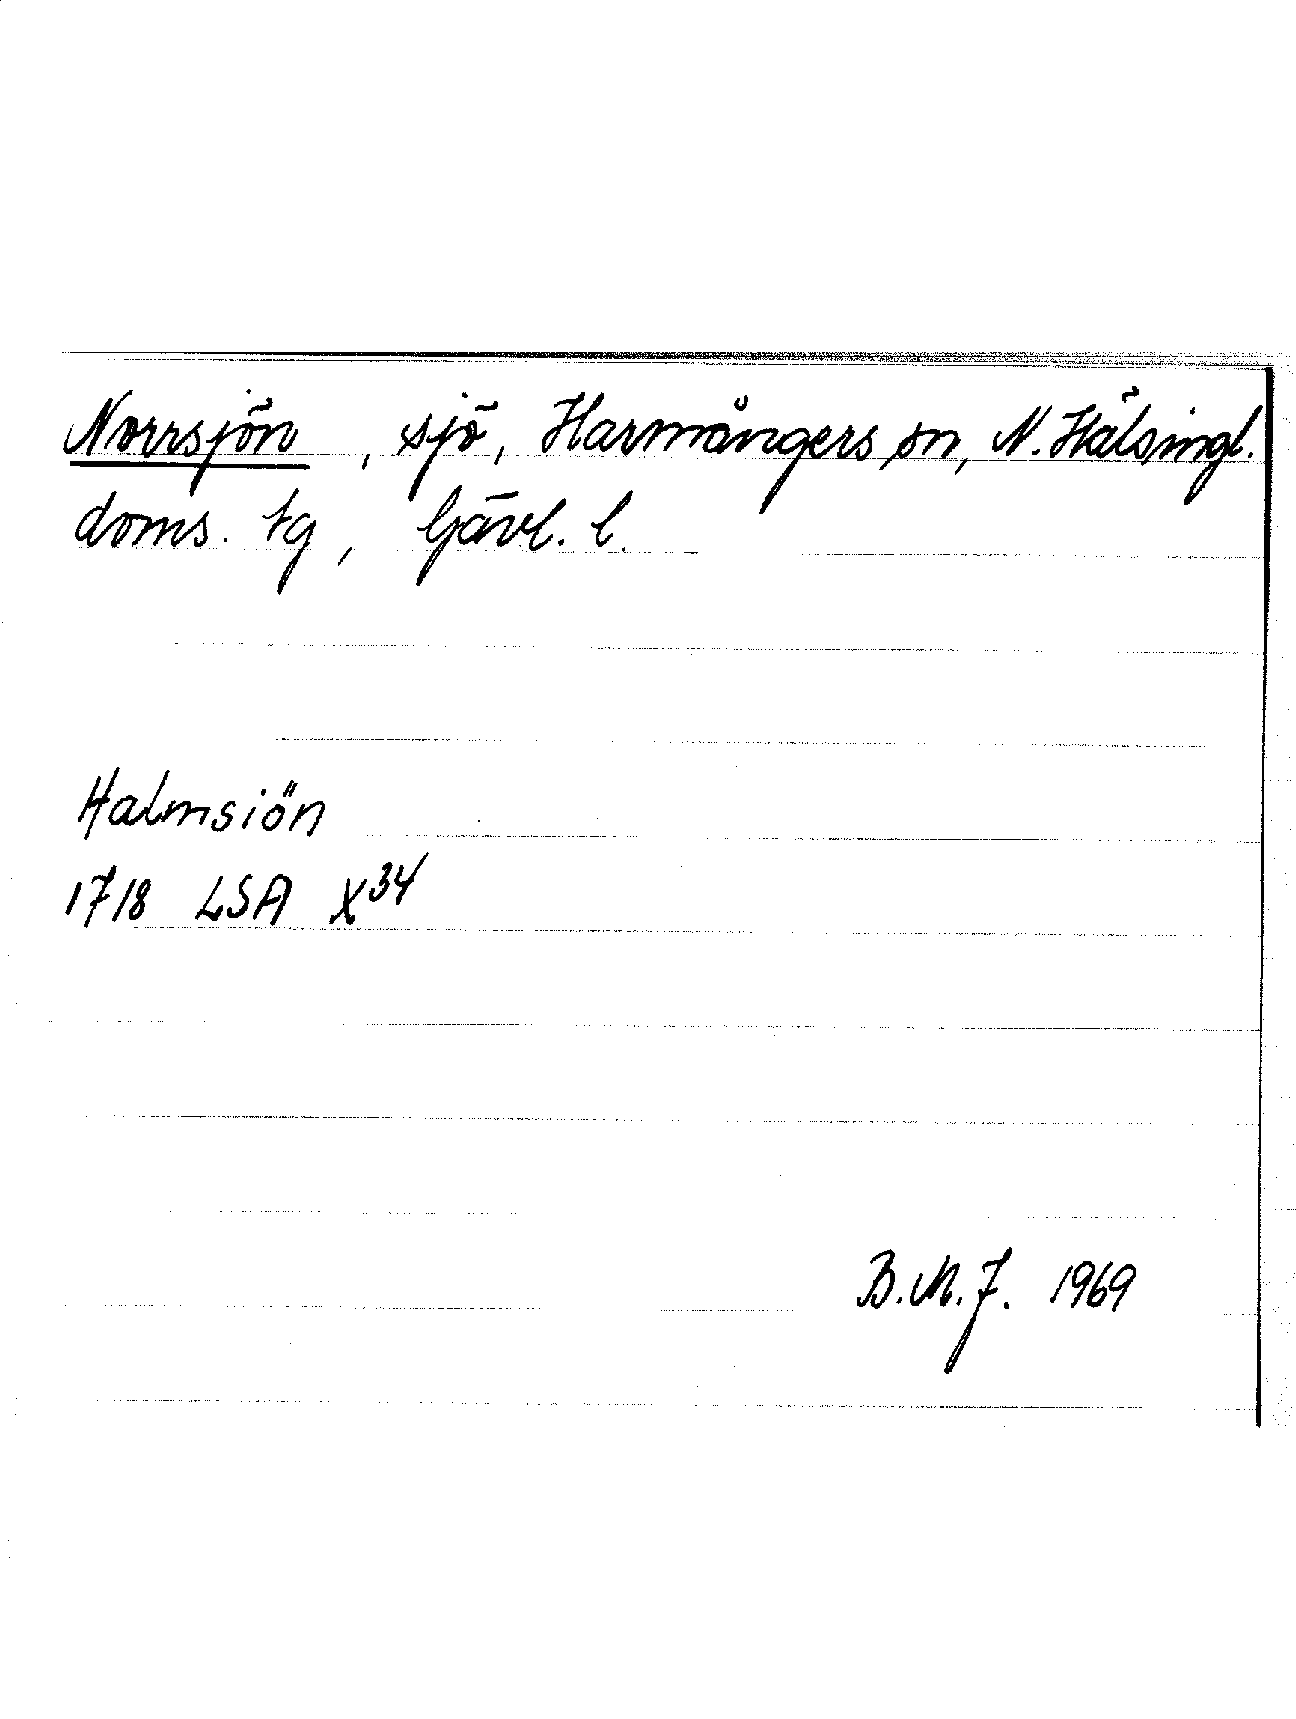 Norrsjön, sjö, Harmångers sn, N. Hälsingl.
doms. tg, Gävl. l.
Halmsiön
1718 LSA X34
B.M.J. 1969